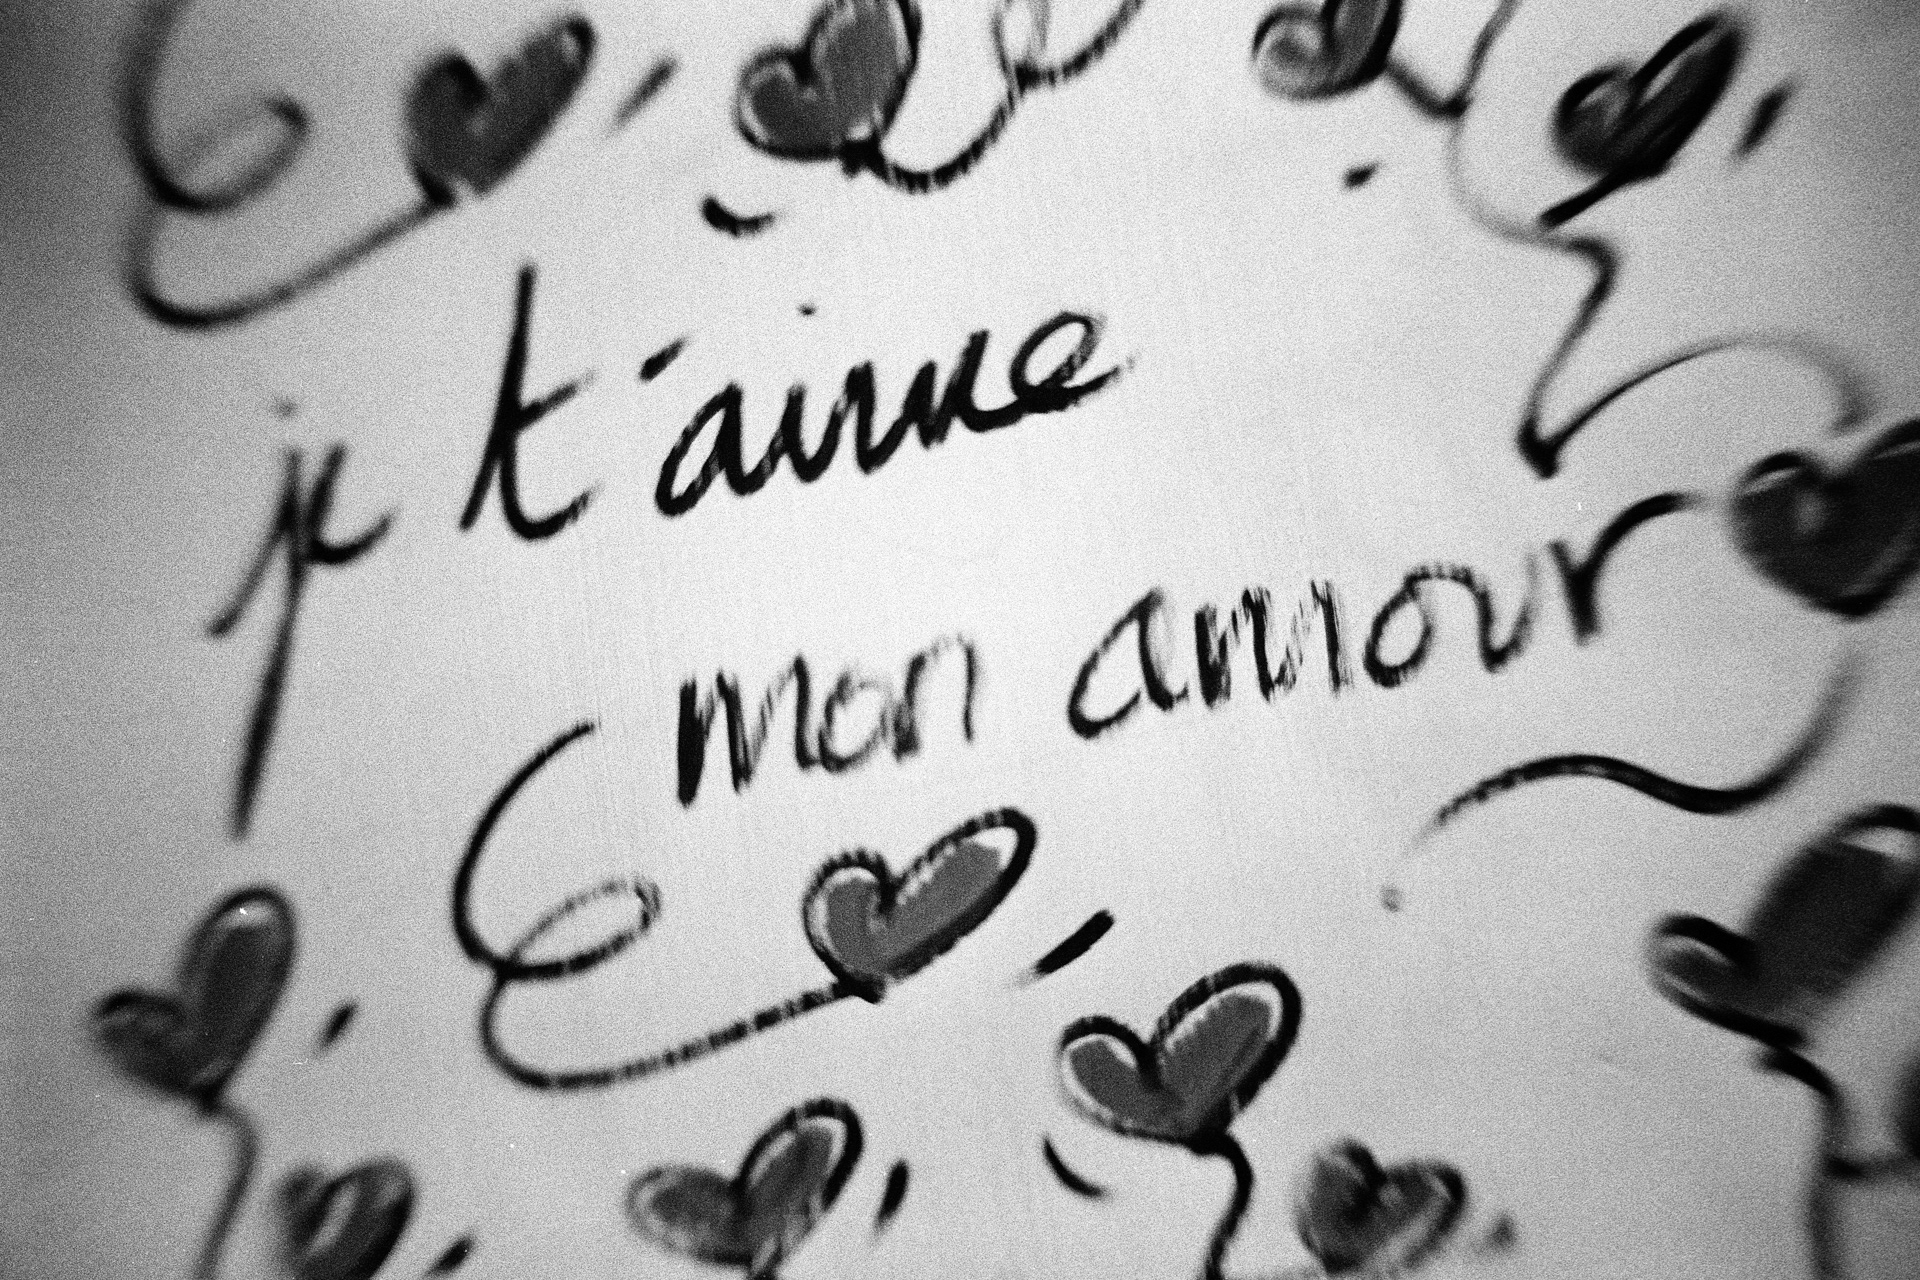 je t'aime
mon amour